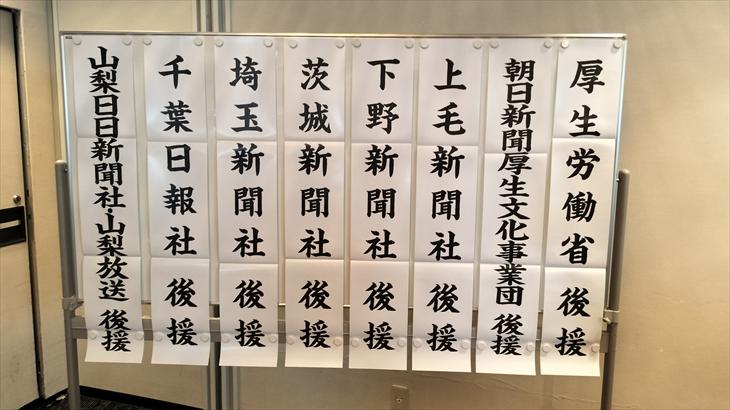 厚生労働省 後援
朝日新聞厚生文化事業団 後援
上毛新聞社 後援
下野新聞社 後援
茨城新聞社 後援
埼玉新聞社 後援
千葉日報社 後援
山梨日日新聞社・山梨放送 後援